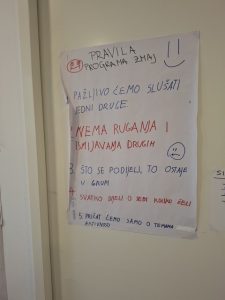 PRAVILA
PROGRAMA ZMAJ
1. PAŽLJIVO ĆEMO SLUŠATI
JEDNI DRUGE.
2. NEMA RUGANJA I
ISMIJAVANJA DRUGIH
3. ŠTO SE PODIJELI, TO OSTAJE
U GRUPI
4. SVATKO DIJELI O SEBI KOLIKO ŽELI
5. PRIČAT ĆEMO SAMO O TEMAMA